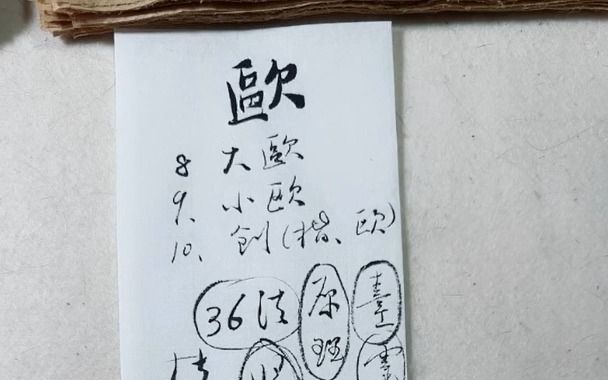 歐
8 大歐
9. 小歐
10. 創(楷、歐)
36法
原理